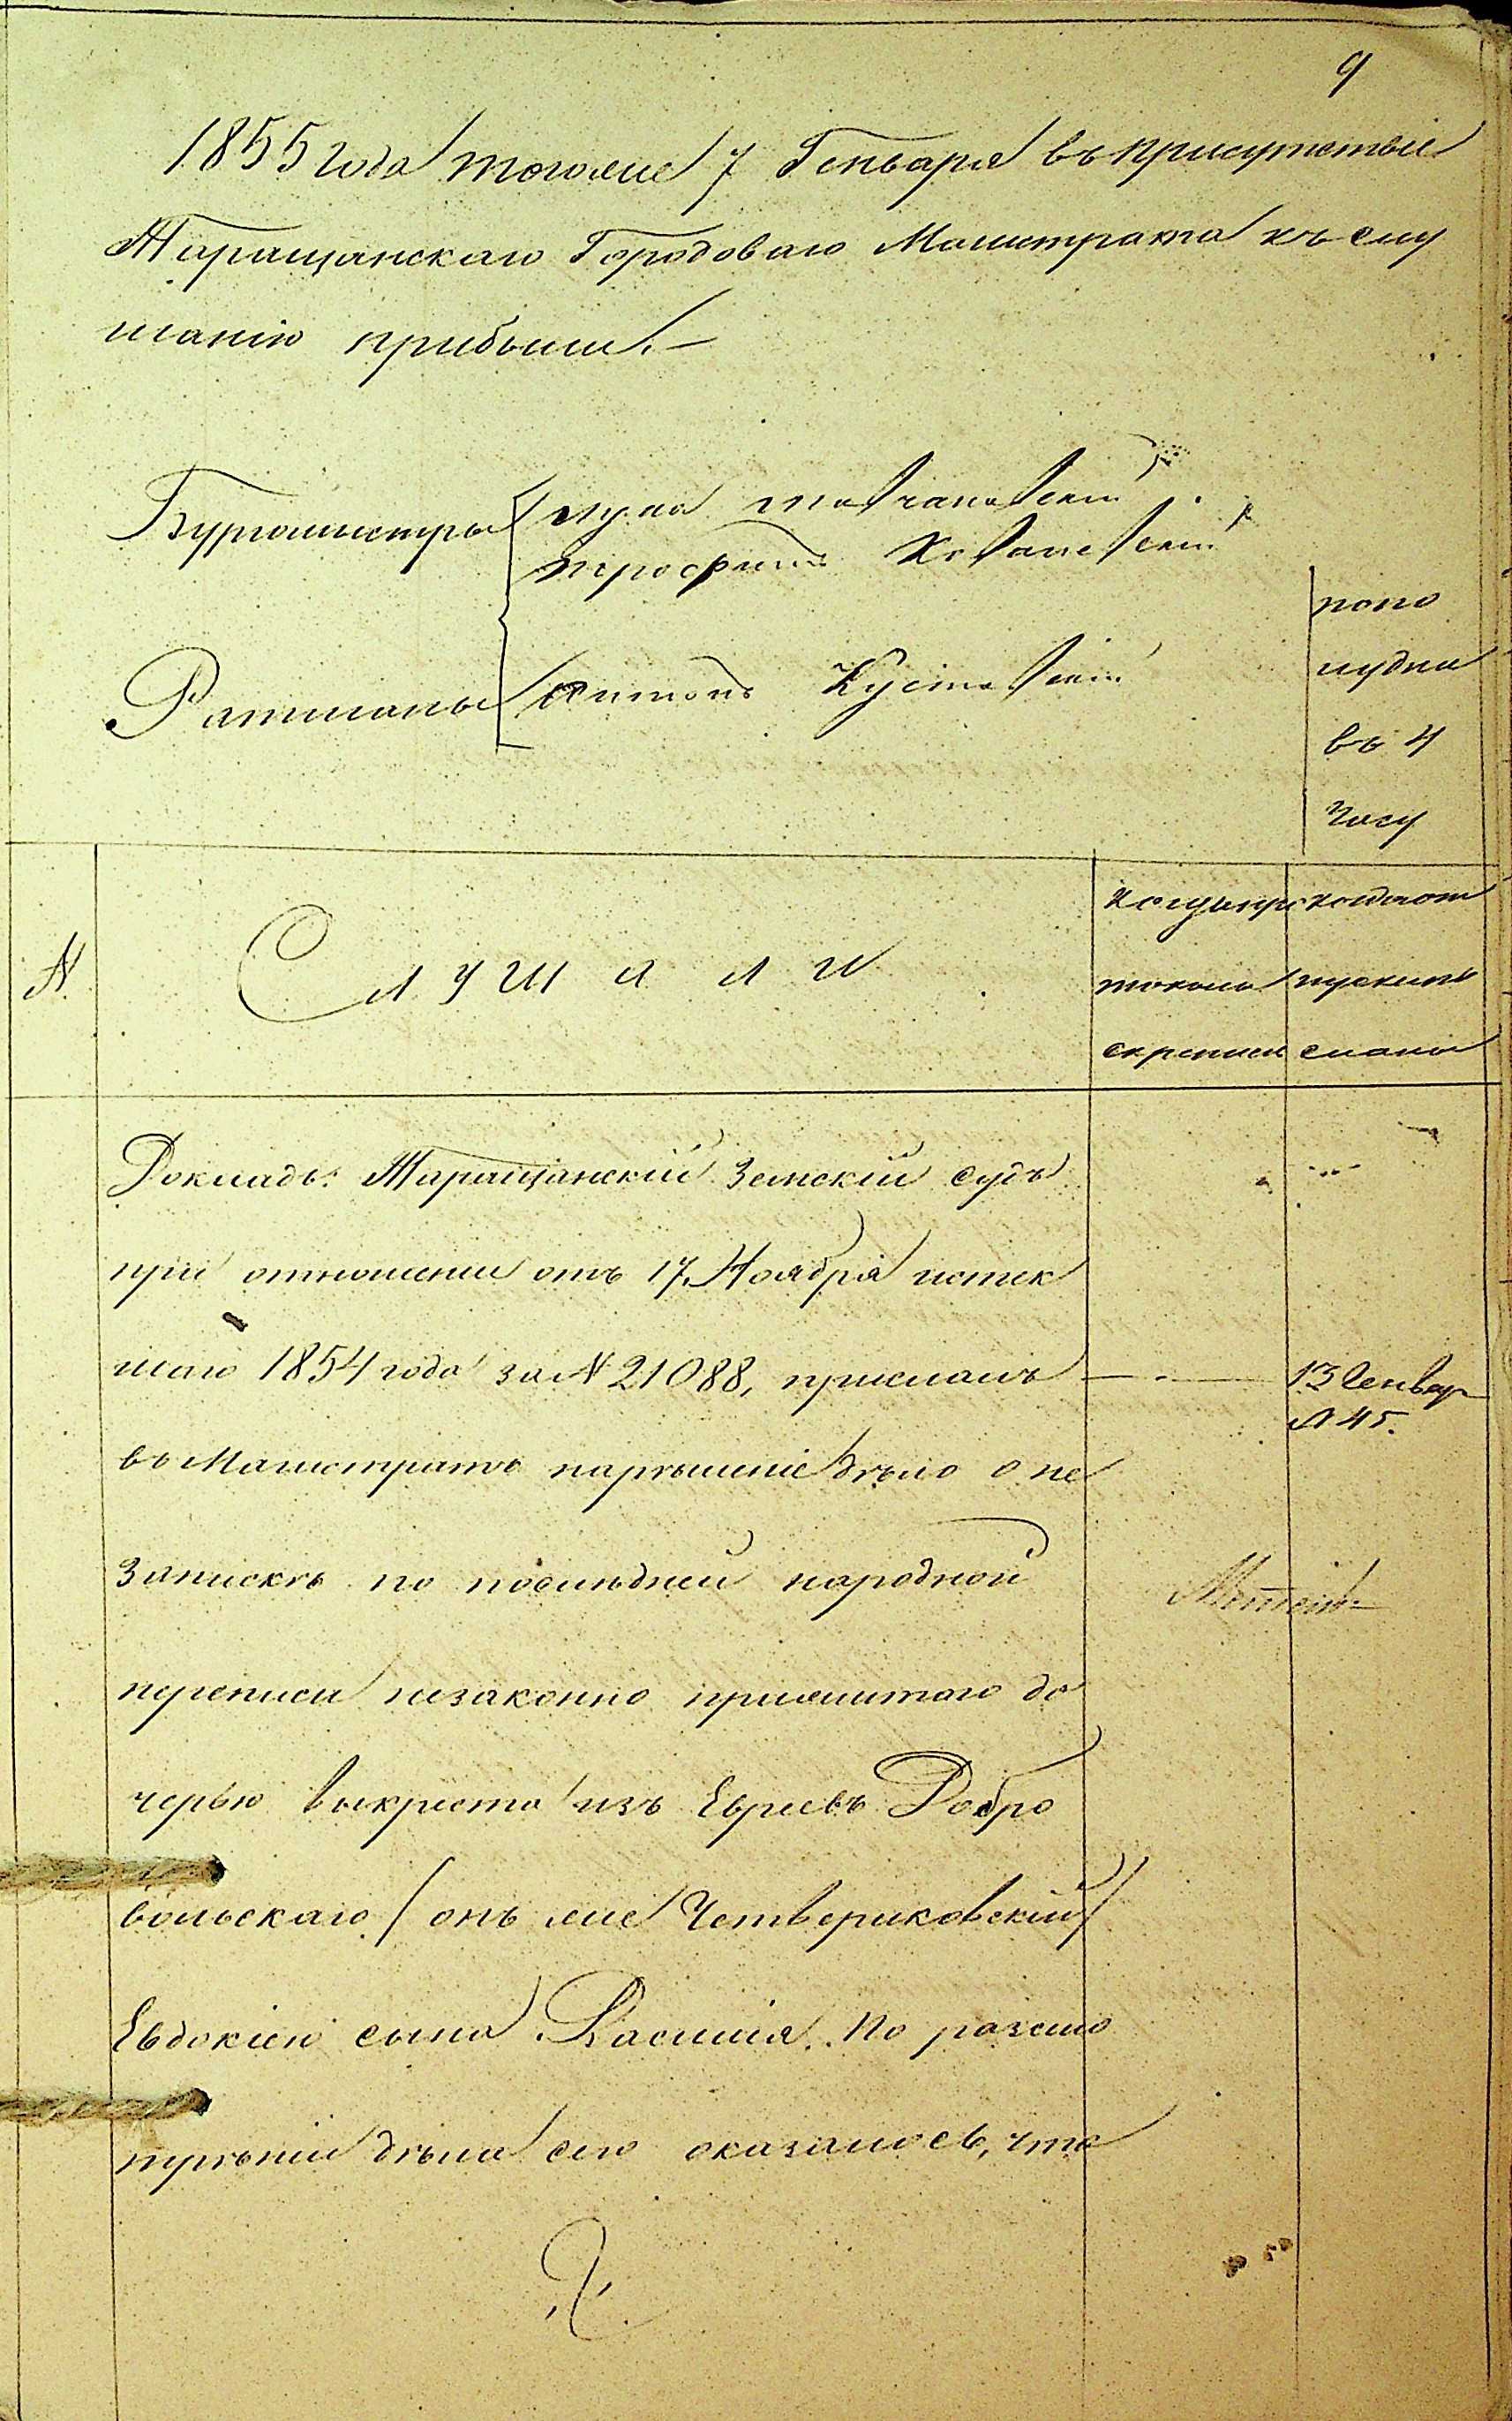 9
1855 года тогоже 7 Генваря въ присутствіе
Таращанскаго Городоваго Магистрата къ слу
шанію прибыли. —
Бургомистры
Трофимъ
Ратманы Антонъ
попо
лудни
въ 4
Часу
№ Слушали
Когда про
токолъ
скрепленъ
Когда от
пускъ
сланъ
Докладъ: Таращанскій Земскій Судъ
при отношеніи отъ 17 Ноября истек
шаго 1854 года за № 21088, прислалъ
13 Генвар
№ 45.
въ Магистратъ на рѣшеніе дѣло о не
запискѣ по послѣдней народной
переписи незаконно прижитаго до
черью выкреста изъ Евреевъ Добро
вольскаго / онъ же Четвериковскій /
Евдокіею сына Василія. По разсмо
трѣніи дѣла сего оказалось, что